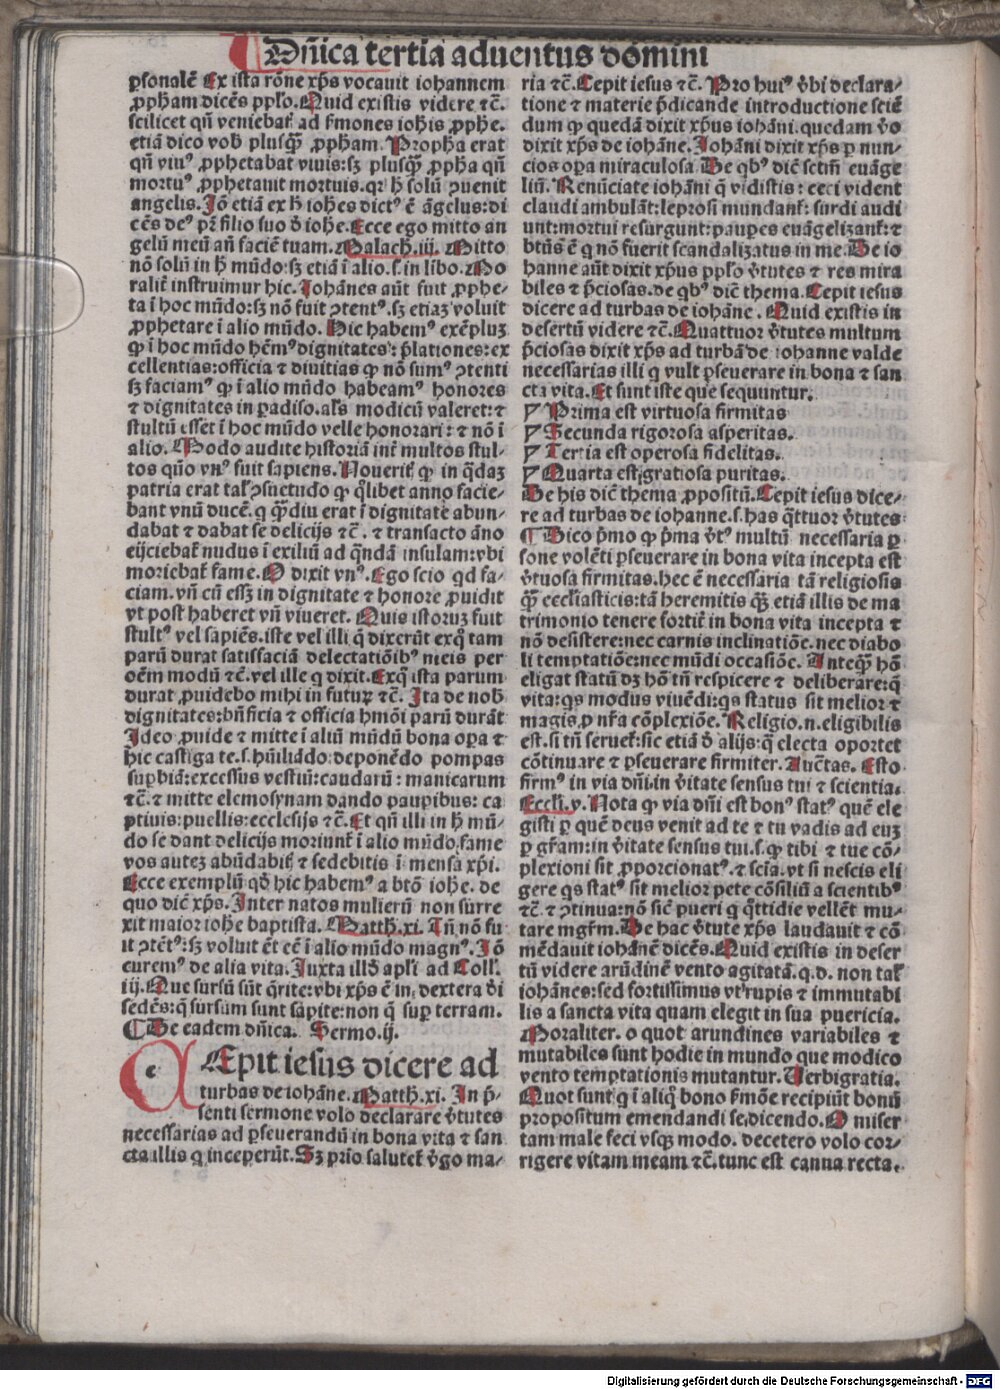 Dñica tertia aduentus domini
ꝑsonalē Ex ista rōne xp̄s vocauit iohannem
ꝓph̄am dicēs pplo. Quid existis videre ⁊c̄.
scilicet qn̄ veniebat̄ ad s̄mones ioh̄is ꝓphe.
etiā dico vob̄ plusqꝫ ꝓpham. Propha erat
qn̄ viuꝰ ꝓphetabat viuis: sꝫ plusqꝫ ꝓpha qn̄
mortuꝰ ꝓphetauit mortuis. qꝛ h̄ solū ꝯuenit
angelis. Iō etiā ex h̄ ioh̄es dictꝰ ē āgelus: di
cēs deꝰ pr̄ filio suo d̄ ioh̄e. Ecce ego mitto an
gelū meū an̄ faciē tuam. Malach. iii. Mitto
nō solū in h̄ mūdo: sꝫ etiā ī alio. s. in libo. Mo
ralit̄ instruimur hic. Iohānes aūt fuit ꝓphe⸗
ta ī hoc mūdo: sꝫ nō fuit ꝯtentꝰ. sꝫ etiaꝫ voluit
ꝓphetare ī alio mūdo. Hic habemꝰ exēpluꝫ
ꝙ ī hoc mūdo hēmꝰ dignitates: p̄lationes: ex
cellentias: officia ⁊ diuitias ꝙ nō sumꝰ ꝯtenti
sꝫ faciamꝰ ꝙ ī alio mūdo habeamꝰ honores
⁊ dignitates in ꝑadiso. al̄s modicū valeret: ⁊
stultū esset ī hoc mūdo velle honorari: ⁊ nō ī
alio. Modo audite historiā int̄ multos stul⸗
tos qūo vnꝰ fuit sapiens. Nouerit̄ ꝙ in q̄daꝫ
patria erat tal̄ ꝯsuetudo ꝙ q̄libet anno facie⸗
bant vnū ducē. q̄ qꝫdiu erat ī dignitate abun⸗
dabat ⁊ dabat se delicijs ⁊c̄. ⁊ transacto āno
eijciebat̄ nudus ī exiliū ad q̄ndā insulam: vbi
moriebat̄ fame. O dixit vnꝰ. Ego scio qd fa⸗
ciam. vn̄ cū essꝫ in dignitate ⁊ honore ꝓuidit
vt post haberet vn̄ viueret. Quis istoruꝫ fuit
stultꝰ vel sapiēs. iste vel illi q̄ dixerūt exq̄ tam
parū durat satisfaciā delectatiōibꝰ meis per
oēm modū ⁊c̄. vel ille q̄ dixit. Exq̄ ista parum
durat ꝓuidebo mihi in futuꝝ ⁊c̄. Ita de nob̄
dignitates: bn̄ficia ⁊ officia hmōi parū durāt
Ideo ꝓuide ⁊ mitte ī aliū mūdū bona oꝑa ⁊
hic castiga te. s. hūiliādo: deponēdo pompas
suꝑbiā: excessus vestiū: caudarū: manicarum
⁊c̄. ⁊ mitte elemosynam dando pauꝑibus: ca
ptiuis: puellis: ecclesijs ⁊c̄. Et qn̄ illi in h̄ mū⸗
do se dant delicijs moriunt̄ ī alio mūdo fame
vos auteꝫ abūdabit̄ ⁊ sedebitis ī mensa xp̄i.
Ecce exemplū qd̄ hic habemꝰ a btō ioh̄e. de
quo dic̄ xp̄s. Inter natos mulierū non surre
xit maior ioh̄e baptista. Matth. xi. Tn̄ nō fu
it ꝯtētꝰ: sꝫ voluit ēt ēē ī alio mūdo magnꝰ. Iō
curemꝰ de alia vita. Iuxta illd̄ apl̄i ad Coll.
iij. Que sursū sūt q̄rite: vbi xp̄s ē in dextera d̄i
sedēs: q̄ sursum sunt sapite: non q̄ suꝑ terram.
¶ De eadem dn̄ica. Sermo. ij.
CEpit iesus dicere ad
turbas de iohāne. Matth. xi. In p̄⸗
senti sermone volo declarare v̄tutes
necessarias ad ꝑseuerandū in bona vita ⁊ san
cta illis q̄ inceperūt. Sꝫ prio salutet̄ v̄go ma⸗
ria ⁊c̄. Cepit iesus ⁊c̄. Pro huiꝰ v̄bi declara⸗
tione ⁊ materie p̄dicande introductione sciē
dum ꝙ quedā dixit xp̄us iohāni. quedam v̄o
dixit xp̄s de iohāne. Iohāni dixit xp̄s ꝑ nun⸗
cios oꝑa miraculosa. De qbꝰ dic̄ sctm̄ euāge
liū. Renūciate iohāni q̄ vidistis: ceci vident
claudi ambulāt: leprosi mundant̄: surdi audi
unt: mortui resurgunt: pauꝑes euāgelizant̄: ⁊
btūs ē q̄ nō fuerit scandalizatus in me. De io
hanne aūt dixit xp̄us pplo v̄tutes ⁊ res mira
biles ⁊ p̄ciosas. de qbꝰ dic̄ thema. Cepit iesus
dicere ad turbas de iohāne. Quid existis in
desertū videre ⁊c̄. Quattuor v̄tutes multum
p̄ciosas dixit xp̄s ad turbā de iohanne valde
necessarias illi q̄ vult ꝑseuerare in bona ⁊ san
cta vita. Et sunt iste que sequuntur.
Prima est virtuosa firmitas
Secunda rigorosa asperitas.
Tertia est operosa fidelitas.
Quarta est gratiosa puritas.
De his dic̄ thema ꝓpositū. Cepit iesus dice⸗
re ad turbas de iohanne. s. has q̄ttuor v̄tutes
¶ Dico p̄mo ꝙ p̄ma v̄tꝰ multū necessaria ꝑ
sone volēti ꝑseuerare in bona vita incepta est
v̄tuosa firmitas. hec ē necessaria tā religiosis
qꝫ eccl̄iasticis: tā heremitis qꝫ etiā illis de ma
trimonio tenere fortit̄ in bona vita incepta ⁊
nō desistere: nec carnis inclinatiōe. nec diabo
li temptatiōe: nec mūdi occasiōe. Anteqꝫ hō
eligat statū dꝫ hō tn̄ respicere ⁊ deliberare: q̄
vita: qs modus viuēdi: qs status sit melior ⁊
magis ꝓ nr̄a cōplexiōe. Religio. n. eligibilis
est. si tn̄ seruet̄: sic etiā d̄ alijs: q̄ electa oportet
cōtinuare ⁊ ꝑseuerare firmiter. Auc̄tas. Esto
firmꝰ in via dn̄i. in v̄itate sensus tui ⁊ scientia.
Eccl̄i. v. Nota ꝙ via dn̄i est bonꝰ statꝰ quē ele
gisti ꝑ quē deus venit ad te ⁊ tu vadis ad euꝫ
ꝑ gr̄am: in v̄itate sensus tui. s. ꝙ tibi ⁊ tue cō⸗
plexioni sit ꝓporcionatꝰ. ⁊ sc̄ia. vt si nescis eli
gere qs statꝰ sit melior pete cōsiliū a scientibꝰ
⁊c̄. ⁊ ꝯtinua: nō sic̄ pueri q̄ q̄ttidie vellēt mu⸗
tare mgr̄m. De hac v̄tute xp̄s laudauit ⁊ cō
mēdauit iohānē dicēs. Quid existis in deser
tū videre arūdinē vento agitatā. q. d. non tal̄
iohānes: sed fortissimus vt rupis ⁊ immutabi
lis a sancta vita quam elegit in sua puericia.
Moraliter. o quot arundines variabiles ⁊
mutabiles sunt hodie in mundo que modico
vento temptationis mutantur. Verbigratia.
Quot sunt q̄ ī aliq̄ bono s̄mōe recipiūt bonū
propositum emendandi se, dicendo. O miser
tam male feci vsqꝫ modo. decetero volo cor⸗
rigere vitam meam ⁊c̄. tunc est canna recta.
Digitalisierung gefördert durch die Deutsche Forschungsgemeinschaft - DFG